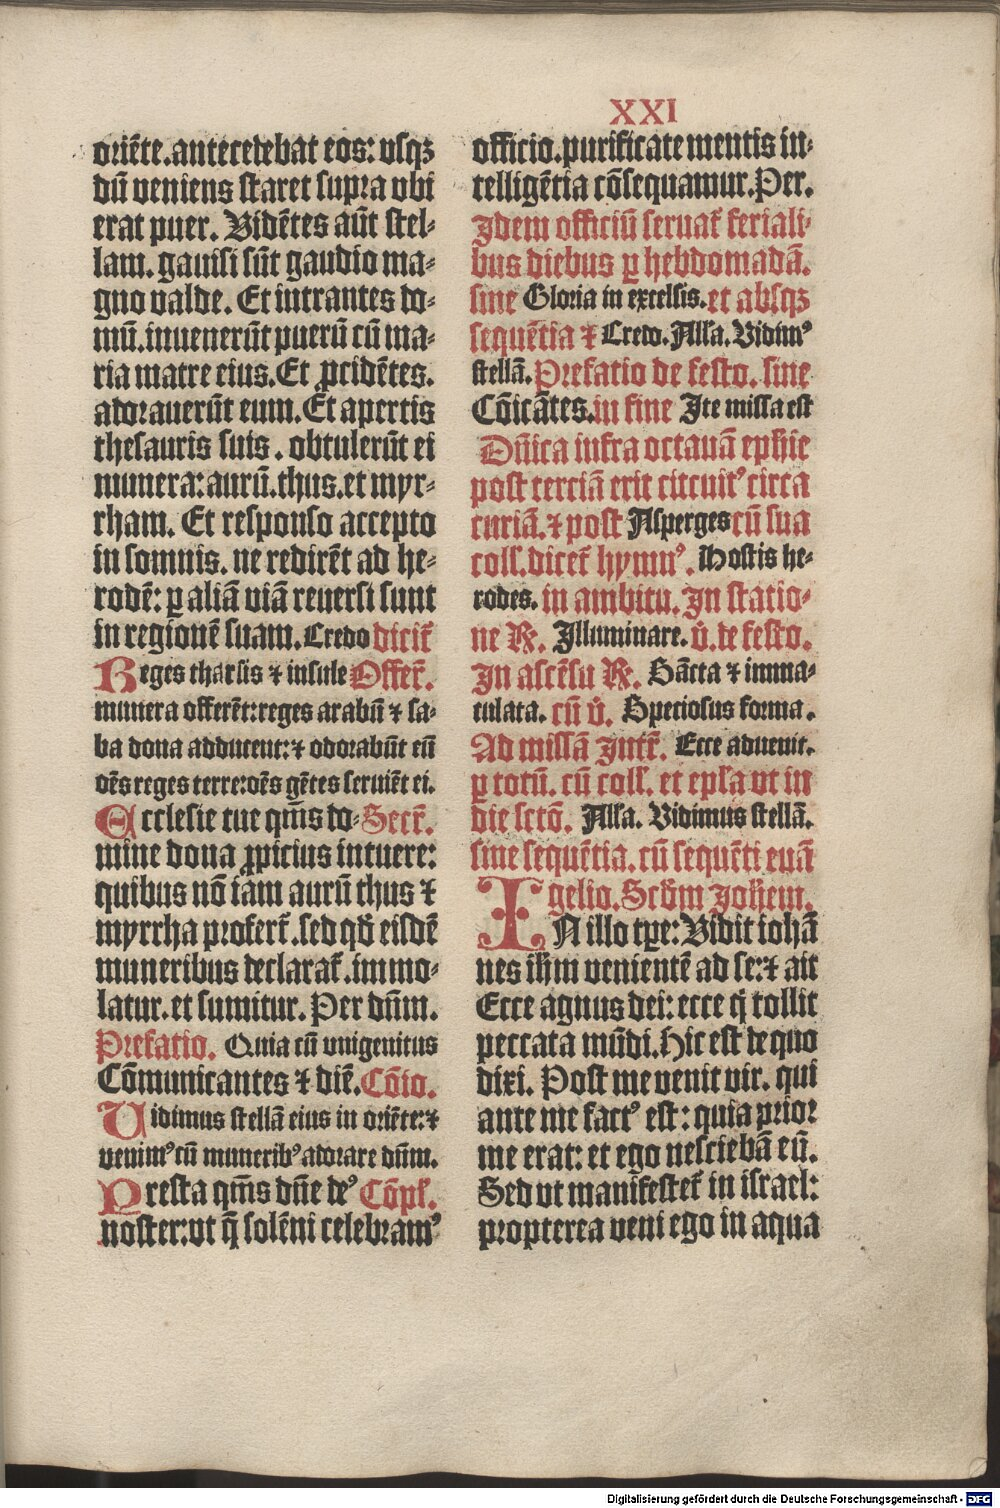 XXI
oriēte.antecedebat eos: vsqꝫ
dū veniens staret supra vbi
erat puer. Vidētes aūt stel-
lam. gauisi sūt gaudio ma-
gno valde. Et intrantes do-
mū.inuenerūt puerū cū ma-
ria matre eius.Et ꝓcidētes.
adorauerūt eum. Et apertis
thesauris suis . obtulerūt ei
munera: aurū.thus.et myr-
rham. Et responso accepto
in somnis. ne redirēt ad he-
rodē: ꝑ aliā viā reuersi sunt
in regionē suam. Credo dicit̄
Reges tharsis ⁊ insule Offer̄.
munera offerēt: reges arabū ⁊ sa-
ba dona adducent: ⁊ adorabūt eū
oēs reges terre: oēs gētes seruiēt ei.
Ecclesie tue qm̄s do- Secr̄.
mine dona ꝓpicius intuere:
quibus nō iam aurū thus ⁊
myrrha profert̄ .sed qđ eisdē
muneribus declarat̄ .immo-
latur. et sumitur. Per dūm.
Prefatio. Quia cū vnigenitus
Cōmunicantes ⁊ diē. Cōio.
Uidimus stellā eius in oriēte: ⁊
venimꝰ cū muneribꝰ adorare dūm.
Presta qm̄s dūe deꝰ Cōpl̄.
noster: vt q̄ solēni celebramꝰ
officio.purificate mentis in-
telligētia cōsequamur. Per.
Idem officiū seruat̄ feriali-
bus diebus ꝑ hebdomadā.
sine Gloria in excelsis. et absqꝫ
sequētia ⁊ Credo. Alla. Vidimꝰ
stellā. Prefatio de festo. sine
Cōicātes. in fine Ite missa est
Dn̄ica infra octauā ephie
post terciā erit circuitꝰ circa
curiā. ⁊ post Asperges cū sua
coll. dicet̄ hymnꝰ. Hostis he-
rodes. in ambitu. In statio-
ne ℟. Illuminare. v̄. de festo.
In ascēsu ℟. Sācta ⁊ imma-
culata. cū v̄. Speciosus forma.
Ad missā Intr̄. Ecce aduenit.
ꝑ totū. cū coll. et epla vt in
die sctō. Alla. Vidimus stellā.
sine sequētia. cū sequēti euā
gelio. Scdm Johem.
IN illo tꝑe: Vidit iohā
nes ihm venientē ad se: ⁊ ait
Ecce agnus dei: ecce q̄ tollit
peccata mūdi. Hic est de quo
dixi. Post me venit vir. qui
ante me factꝰ est: quia prior
me erat: et ego nesciebā eū.
Sed vt manifestet̄ in israel:
propterea veni ego in aqua
Digitalisierung gefördert durch die Deutsche Forschungsgemeinschaft - DFG